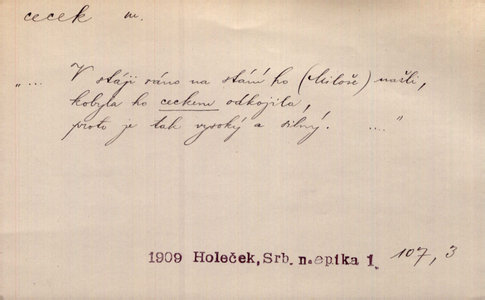 cecek m.
„.... V stáji ráno na stání ho (Miloše) našli,
kobyla ho ceckem odkojila,
proto je tak vysoký a silný. ...."
1909 Holeček, Srb. n. epika 1. 107, 3